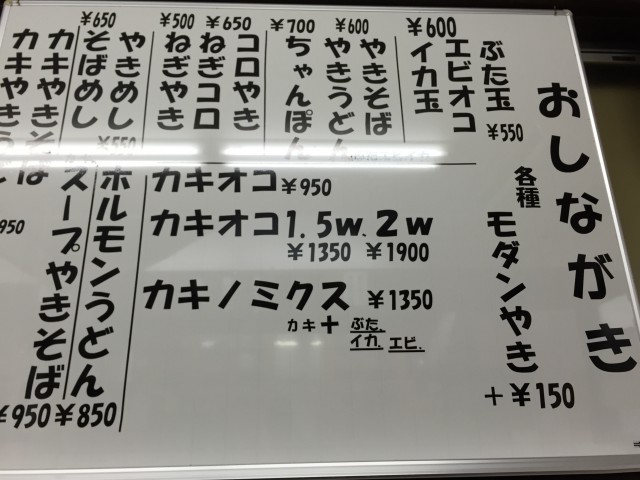 おしながき
¥600
ぶた玉
エビオコ
イカ玉
¥550
各種
モダンやき
+¥150
¥600
やきそば
やきうどん
¥700
ちゃんぽん
¥650
コロやき
ねぎコロ
¥500
ねぎやき
¥650
やきめし
そばめし
カキやきそば
カキやきう
カキオコ ¥950
カキオコ 1.5w. 2w
¥1350 ¥1900
カキノミクス ¥1350
カキ+ ぶた.
イカ. エビ.
ホルモンうどん
¥850
スープやきそば
¥950
950